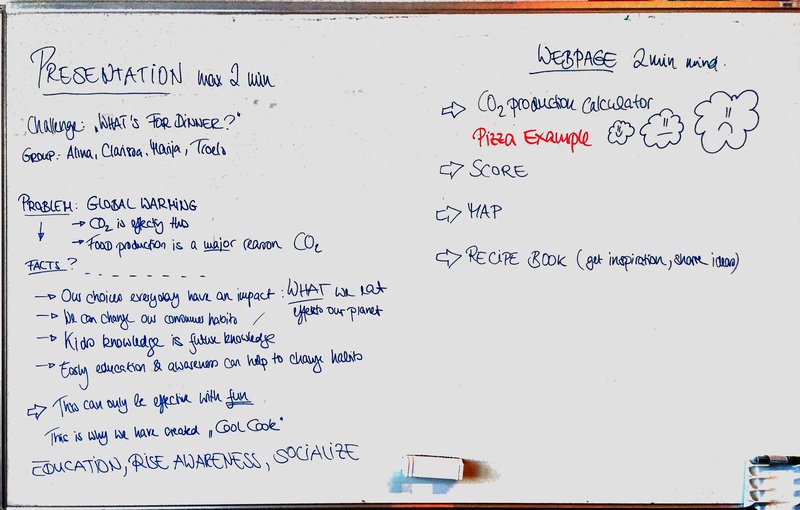 PRESENTATION max 2 min
Challenge: „WHAT'S FOR DINNER?"
GROUP: Alina, Clarissa, Marija, Troels
PROBLEM: GLOBAL WARMING
→ CO2 is effectig this
→ FOOD production is a major reason CO2
FACTS?
→ Our choices everyday have an impact: WHAT we eat
effects our planet
→ We can change our consumer habits
→ Kids knowledge is future knowledge
→ Early education & awareness can help to change habits
⇨ This can only be effective with fun
This is why we have created „COOL COOK"
EDUCATION, RISE AWARENESS, SOCIALIZE
WEBPAGE 2 min mind.
⇨ CO2 production calculator
Pizza Example
⇨ SCORE
⇨ MAP
⇨ RECIPE BOOK (get inspiration, share ideas)